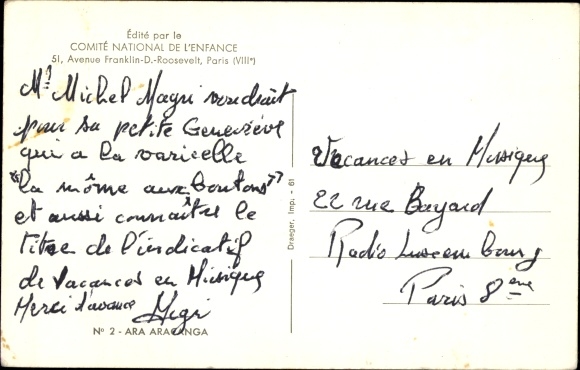 Édité par le
COMITÉ NATIONAL DE L'ENFANCE
51, Avenue Franklin-D.-Roosevelt, Paris (VIIIe)
Mr Michel Magri voudrait
pour sa petite Geneviève
qui a la varicelle
"la môme aux boutons"
et aussi connaître le
titre de l'indicatif
de Vacances en Musique
Merci d'avance Magri
No 2 - ARA ARACANGA
Draeger, Imp. - 61
Vacances en Musique
22 rue Bayard
Radio Luxembourg
Paris 8ème